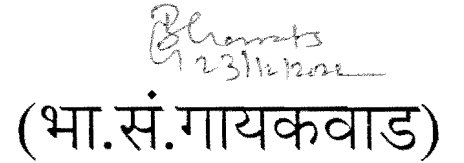 23/12/2022
(भा.सं.गायकवाड)